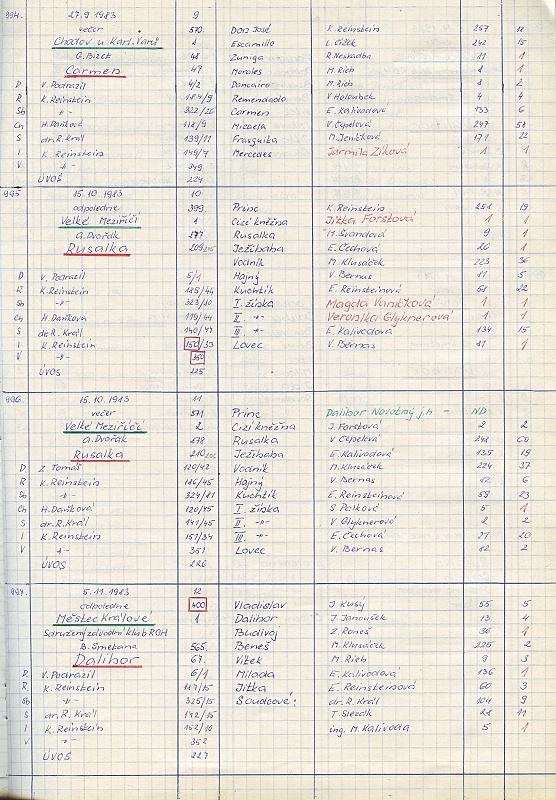 994. 27.9 1983 9
večer 570 Don José K. Reinstein 257 18
Chodov u Karl. Varů 1 Escamillo L. Čížek 242 15
G. Bizet 48 Zuniga R. Neskudba 11 1
Carmen 47 Morales M. Rieb 8 1
D V. Podrazil 4/2 Dancairo M. Rieb 8 2
R K. Reinstein 184/9 Remendado V. Holoubek 4 4
Sb -"- 322/26 Carmen E. Kalivodová 133 6
Ch H. Daňková 118/9 Micaela V. Čepelová 247 58
S dr. R. Král 139/11 Frasquita M. Jeníčková 171 22
I K. Reinstein 149/7 Mercedes Jarmila Ziková 1 1
V -"- 349
ÚVOS 224
995 15.10.1983 10
odpoledne 399 Princ K. Reinstein 251 19
Velké Meziříčí 1 Cizí kněžna Jitka Forstová 1 1
A. Dvořák 277 Rusalka M. Švandová 9 1
Rusalka 209 Ježibaba E. Čechová 26 1
Vodník M. Klusáček 223 36
D V. Podrazil 5/1 Hajný V. Bernas 11 5
R K. Reinstein 185/44 Kuchtík E. Reinsteinová 58 22
Sb -"- 323/10 I. žínka Magda Vaníčková 1 1
Ch H. Daňkova 119/44 II -"- Veronika Glyknerová 1 1
S dr. R. Král 140/44 III -"- E Kalivodová 134 15
I K. Reinstein 150/33 Lovec V. Bernas 11 1
V -"- 350
ÚVOS 225
996. 15.10.1983 11
večer 571 Princ Dalibor Novotný j.h - ND
Velké Meziříčí 2 Cizí kněžna J. Forstová 2 2
A. Dvořák 278 Rusalka V Čepelová 248 60
Rusalka 210 Ježibaba E. Kalivodová 135 19
D Z. Tomáš 120/42 Vodník M. Klusáček 224 37
R K. Reinstein 186/45 Hajný V. Bernas 12 6
Sb -"- 324/11 Kuchtík E. Reinsteinová 59 23
Ch H. Daňková 120/45 I. žínka S Palková 5 1
S dr. R. Král 141/45 II. -"- V Glyknerová 2 2
I K. Reinstein 151/34 III. -"- E. Čechová 27 20
V -"- 351 Lovec V. Bernas 12 2
ÚVOS 226
997. 5.11.1983 12
odpoledne 400 Vladislav J Kusý 55 5
Městec Králové 1 Dalibor J. Janoušek 13 4
Sdružený závodní klub ROH Budivoj Z. Roneš 36 1
B. Smetana 565 Beneš M. Klusáček 225 2
Dalibor 67. Vítek M. Rieb 9 3
D. V. Podrazil 6/1 Milada E. Kalivodová 136 1
R. K. Reinstein 187/15 Jitka E. Reinsteinová 60 3
Sb -"- 325/15 Soudcové: dr. R. Král 104 9
S dr. R. Král 142/15 T. Slezák 28 11
I K. Reinstein 152/10 ing. M. Kalivoda 5 1
V -"- 352
ÚVOS 227